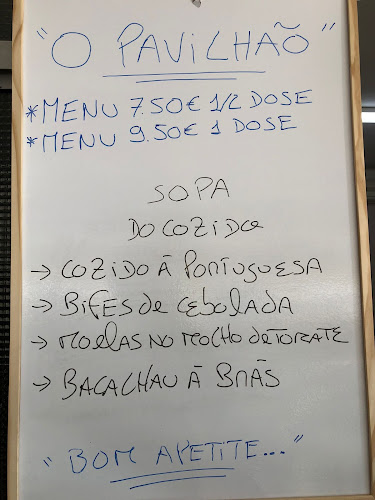 "O PAVILHÃO"
*MENU 7.50€ 1/2 DOSE
*MENU 9.50€ 1 DOSE
SOPA
DO COZIDO
→ COZIDO À PORTUGUESA
→ BIFES DE CEBOLADA
→ MOELAS NO MOLHO DE TOMATE
→ BACALHAU À BRÁS
"BOM APETITE..."